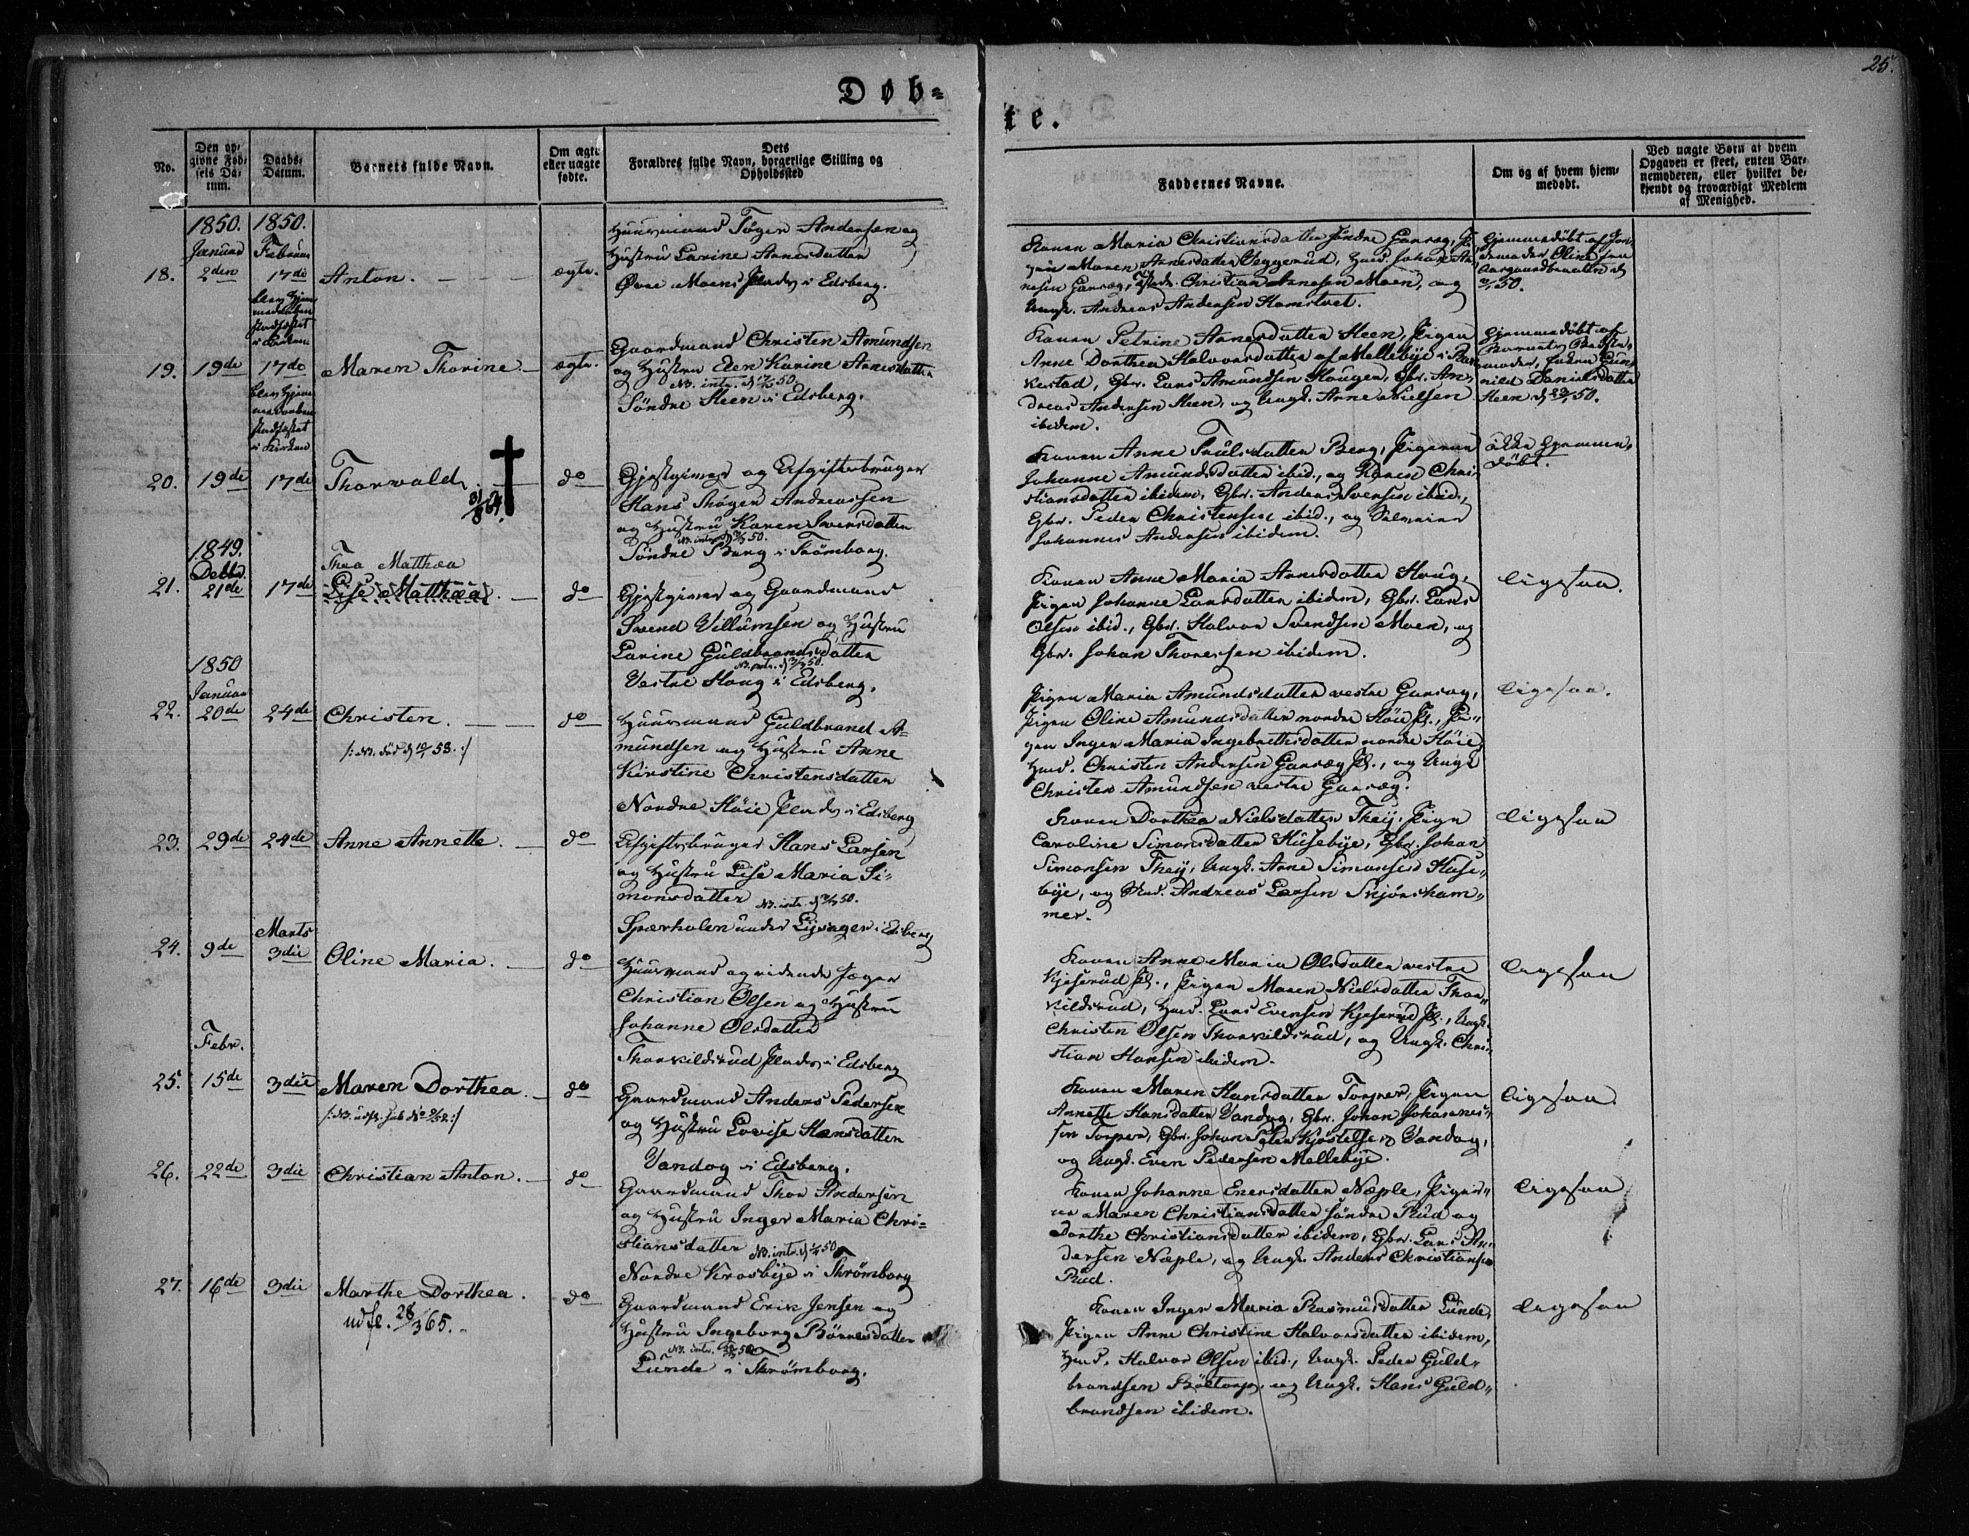 25.
Døb-
te.
No.
Den op-
givne Fød-
sels Da-
tum.
Daabs-
Datum.
Barnets fulde Navn.
Om ægte
eller uægte
fødte.
Dets
Forældres fulde Navn, borgerlige Stilling og
Opholdssted
Faddernes Navne.
Om og af hvem hjem-
medøbt.
Ved uægte Børn af hvem
Opgaven er skeet, enten Bar-
nemoderen, eller hvilket be-
kjendt og troværdigt Medlem
af Menighed.
1850.
Januar
1850.
Februar
18.
2den
17de
Anton.
ægte.
Huusmand Töger Andersen og
Hustru Larine Arnesdatter
Øvre Moens Plads i Edsberg.
Konen Maria Christiansdatter söndre Garseg,
Maren Arnesdatter Veggerud, Huusm. Johan Ar-
nesen Garseg, Christian Arnesen Moen, og
Ungk. Andreas Andersen Hamstvet.
Hjemmedøbt af Jor-
demoder Oline
50.
19.
19de
17de
Maren Thorine.
ægte.
Gaardmand Christen Amundsen
og Hustru Karine Arnesdatter
Söndre Heen i Edsberg.
Konen Petrine Arnesdatter Heen, Pigen
Anne Dorthea Halvorsdatter af Mellebye i Ra-
kestad, Gbr. Lars Amundsen Hougen, Gbr. An-
dreas Andersen Heen, og Ungk. Arne Nielsen
ibidem.
Hjemmedøbt af
Barnets
moder, Enken Gun-
nild Danielsdatter
Heen 50.
20.
19de
17de
Thorwald.
do
Gjestgiver og Afgiftsbruger
Hans Thöger Andreassen
og Hustru Karen Iversdatter
Söndre Berg i Trömborg.
Konen Anne Trulsdatter Berg, Pigerne
Johanne Amundsdatter ibid., og Karen Chri-
stiansdatter ibidem, Gbr. Anders Iversen ibid.,
Gbr. Peder Christensen ibid., og
Johannes Andersen ibidem.
ikke hjemme-
døbt.
1849.
Decbr.
21.
21de
17de
Thea Matthea
Lise Matthea.
do
Gjestgiver og Gaardmand
Svend Villumsen og Hustru
Larine Guldbrandsdatter
Vestre Houg i Edsberg.
Konen Anne Maria Arnesdatter Houg,
Pigen Johanne Larsdatter ibidem, Gbr. Lars
Olsen ibid., Gbr. Halvor Svendsen Moen, og
Gbr. Johan Thoresen ibidem.
ligesaa.
1850
Januar
22.
20de
24de
Christen.
do
Huusmand Guldbrand A-
mundsen og Hustru Anne
Kirstine Christensdatter
Nordre Höie Plads i Edsberg
Pigen Maria Amundsdatter vestre Garseg,
Pigen Oline Amundsdatter nordre Höie Pl., Pi-
gen Inger Maria Ingebrethsdatter nordre Höie
Huusm. Christen Andersen Garseg Pl., og Ungk
Christen Amundsen vestre Garseg.
ligesaa.
23.
29de
24de
Anne Annette.
do
Afgiftsbruger Hans Larsen
og Hustru Lise Maria Si-
monsdatter
under i Edsberg
Konen Dorthea Nielsdatter Theij, Pigen
Caroline Simonsdatter Husebye, Gbr. Johan
Simonsen Theij, Ungk. Arne Simonsen Huse-
bye, og Andreas Larsen Skjörsham-
mer.
ligesaa
Marts
24.
9de
3die
Oline Maria.
do
Huusmand og ridende Jæger
Christian Olsen og Hustru
Johanne Olsdatter
Thorkildsrud Plads i Edsberg
Konen Anne Maria Olsdatter vestre
Kjeserud Pl., Pigen Maren Nielsdatter Thor-
kildsrud, Huusm. Lars Evensen Kjeserud Pl., Ungk.
Christen Olsen Thorkildsrud, og Ungk. Chri-
stian Hansen ibidem.
ligesaa
Febr.
25.
15de
3die
Maren Dorthea.
do
Gaardmand Anders Pedersen
og Hustru Lovise Hansdatter
Vandog i Edsberg.
Konen Maren Hansdatter Torper, Pigen
Annette Hansdatter Vandog, Gbr. Johan Johannes-
sen Torper, Gbr. Johan Vandog,
og Ungk. Even Pedersen Mellebye.
ligesaa.
26.
22de
3die
Christian Anton.
do
Gaardmand Thor Andersen
og Hustru Inger Maria Chri-
stiansdatter
Nordre Krosbye i Trömborg
Konen Johanne Enersdatter Næple, Piger-
ne Maren Christiansdatter söndre Rud og
Dorthe Christiansdatter ibidem, Gbr. Lars An-
dersen Næple, og Ungk. Anders Christiansen
Rud.
ligesaa
27.
16de
3die
Marthe Dorthea.
udfl. 28/3 65.
do
Gaardmand Erik Jensen og
Hustru Ingeborg Börresdatter
Lunde i Trömborg.
Konen Inger Maria Rasmusdatter Lunde,
Pigen Anne Christine Halvorsdatter ibidem,
Huusm. Halvor Olsen ibid., Ungk. Peder Guld-
brandsen Böetorp, og Ungk. Hans Guld-
brandsen ibidem.
ligesaa